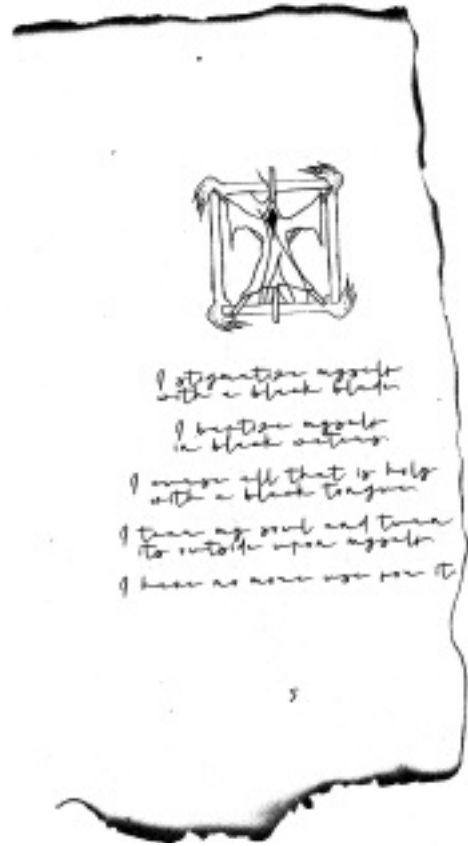 I stigmatize myself
with a black blade
I baptize myself
in black waters
I curse all that is holy
with a black tongue
I tear my soul and turn
its outside upon myself
I have no more use for it
5